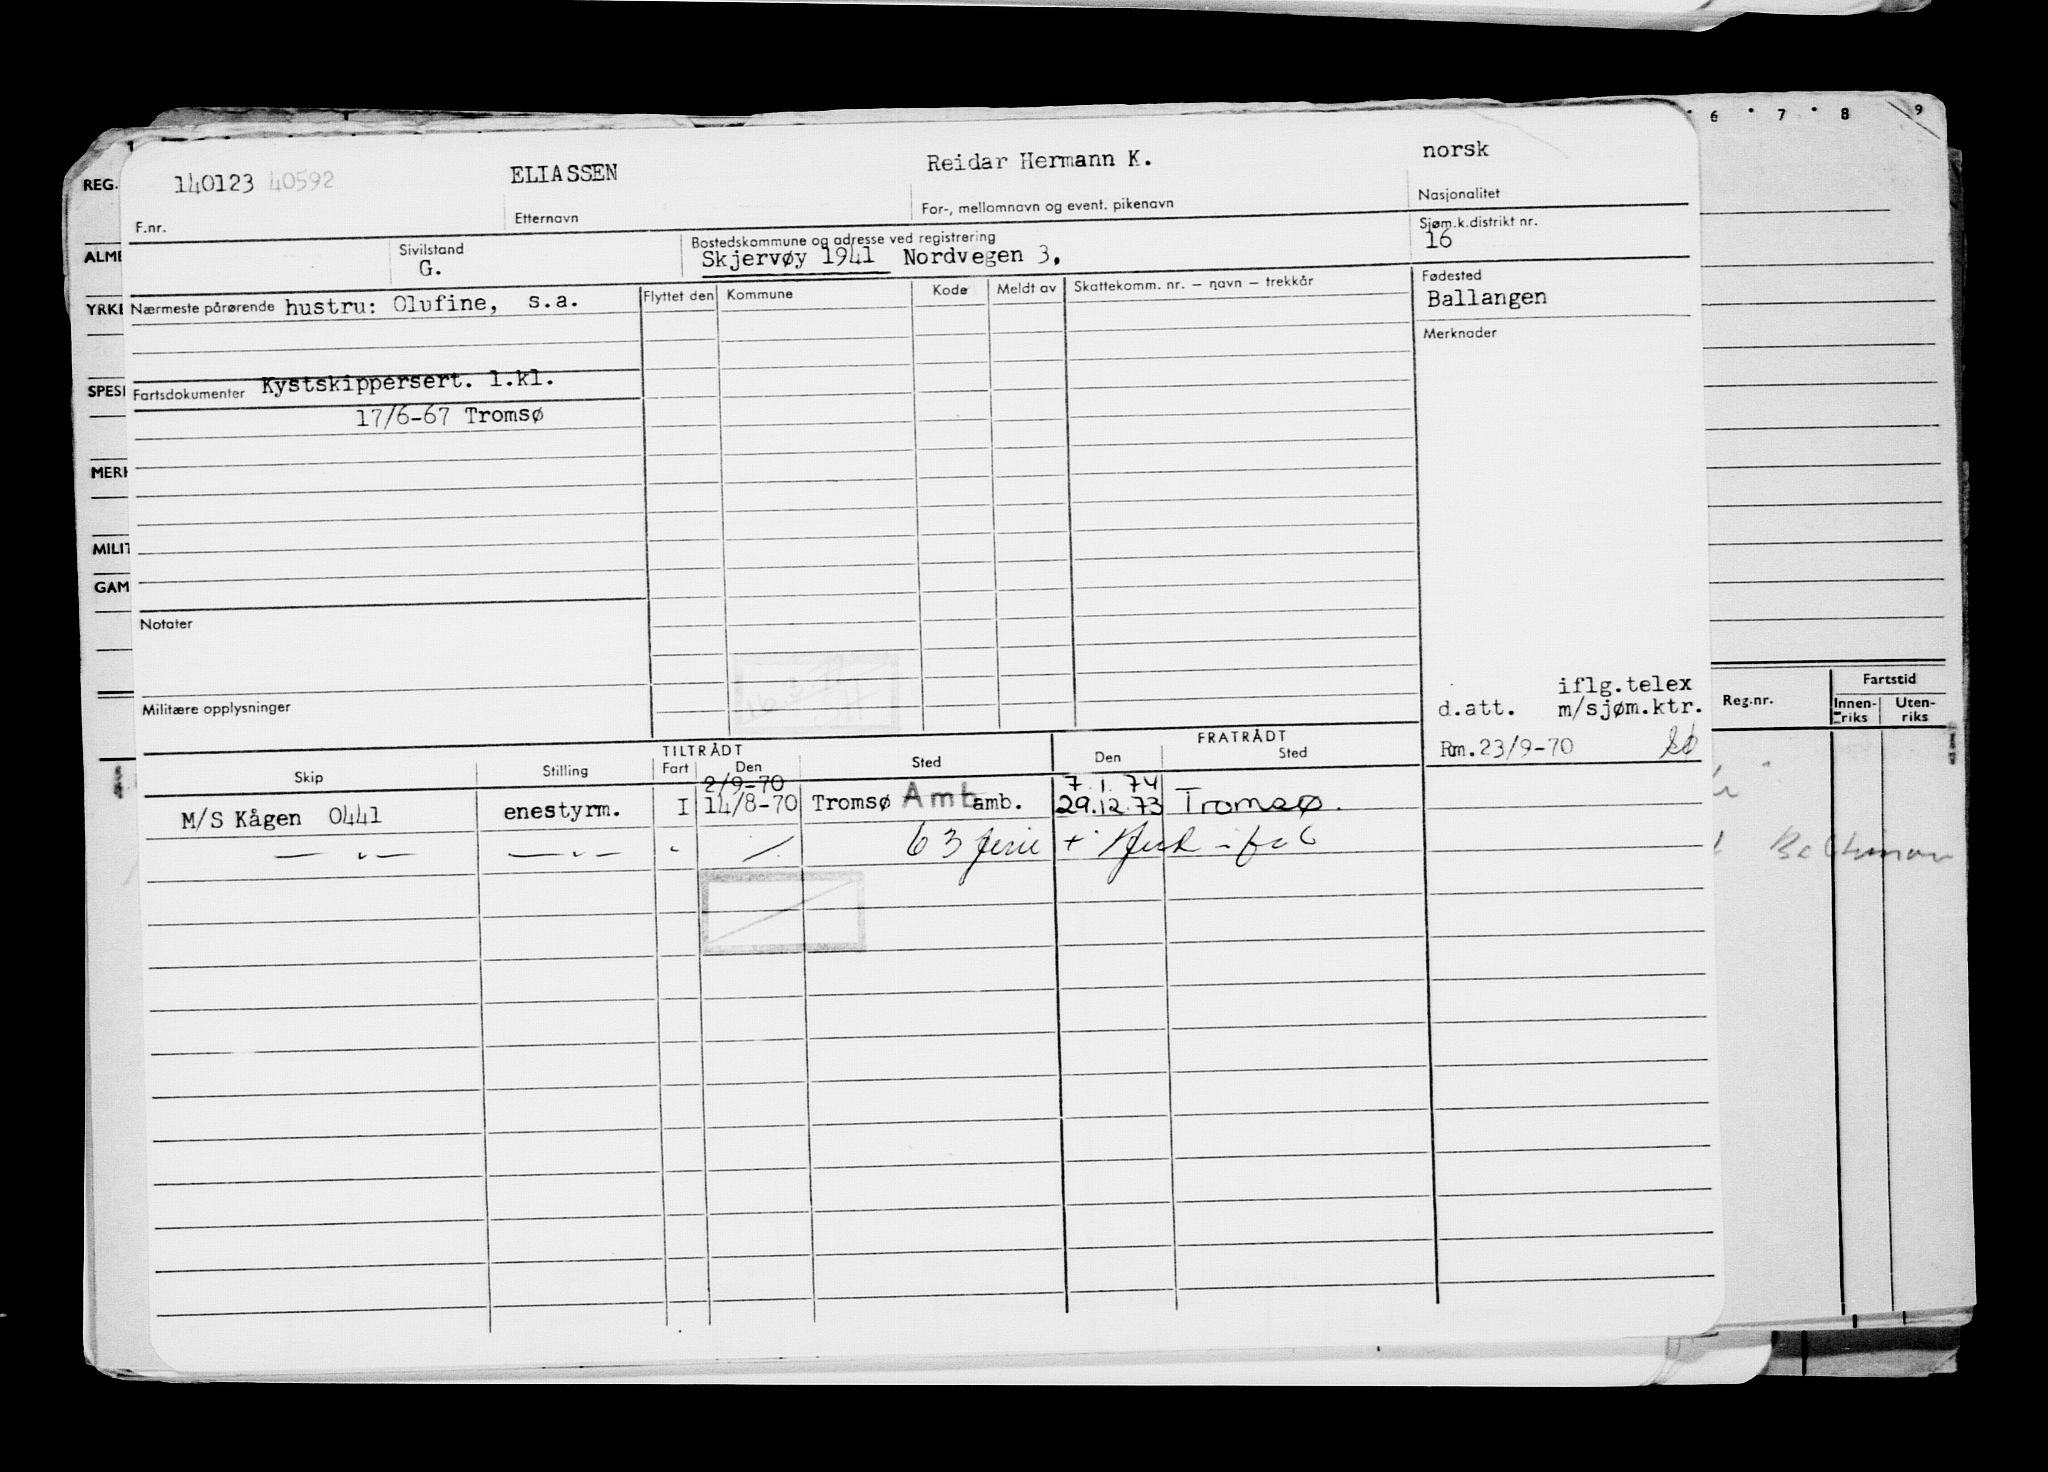 6 7 8 9
REG.
140123 40592 ELIASSEN Reidar Hermann K. norsk
F.nr. Etternavn For-, mellomnavn og event. pikenavn Nasjonalitet
ALME
Sivilstand Bostedskommune og adresse ved registrering Sjøm.k.distrikt nr.
G. Skjervøy 1941 Nordvegen 3. 16
YRKE
Nærmeste pårørende hustru: Olufine, s.a. Flyttet den Kommune Kode Meldt av Skattekomm. nr. – navn – trekkår Fødested
Ballangen
Merknader
SPESI
Fartsdokumenter Kystskippersert. 1.kl.
17/6-67 Tromsø
MERK
MILIT
GAM
Notater
Militære opplysninger
iflg.telex
d.att. m/sjøm.ktr.
Rm.23/9-70
Reg.nr. Fartstid
Innen-riks Uten-riks
TILTRÅDT FRATRÅDT
Skip Stilling Fart Den Sted Den Sted
2/9-70 7.1.74
M/S Kågen 0441 enestyrm. I 14/8-70 Tromsø Amb amb. 29.12.73 Tromsø.
— " — — " — " 63 ferie +